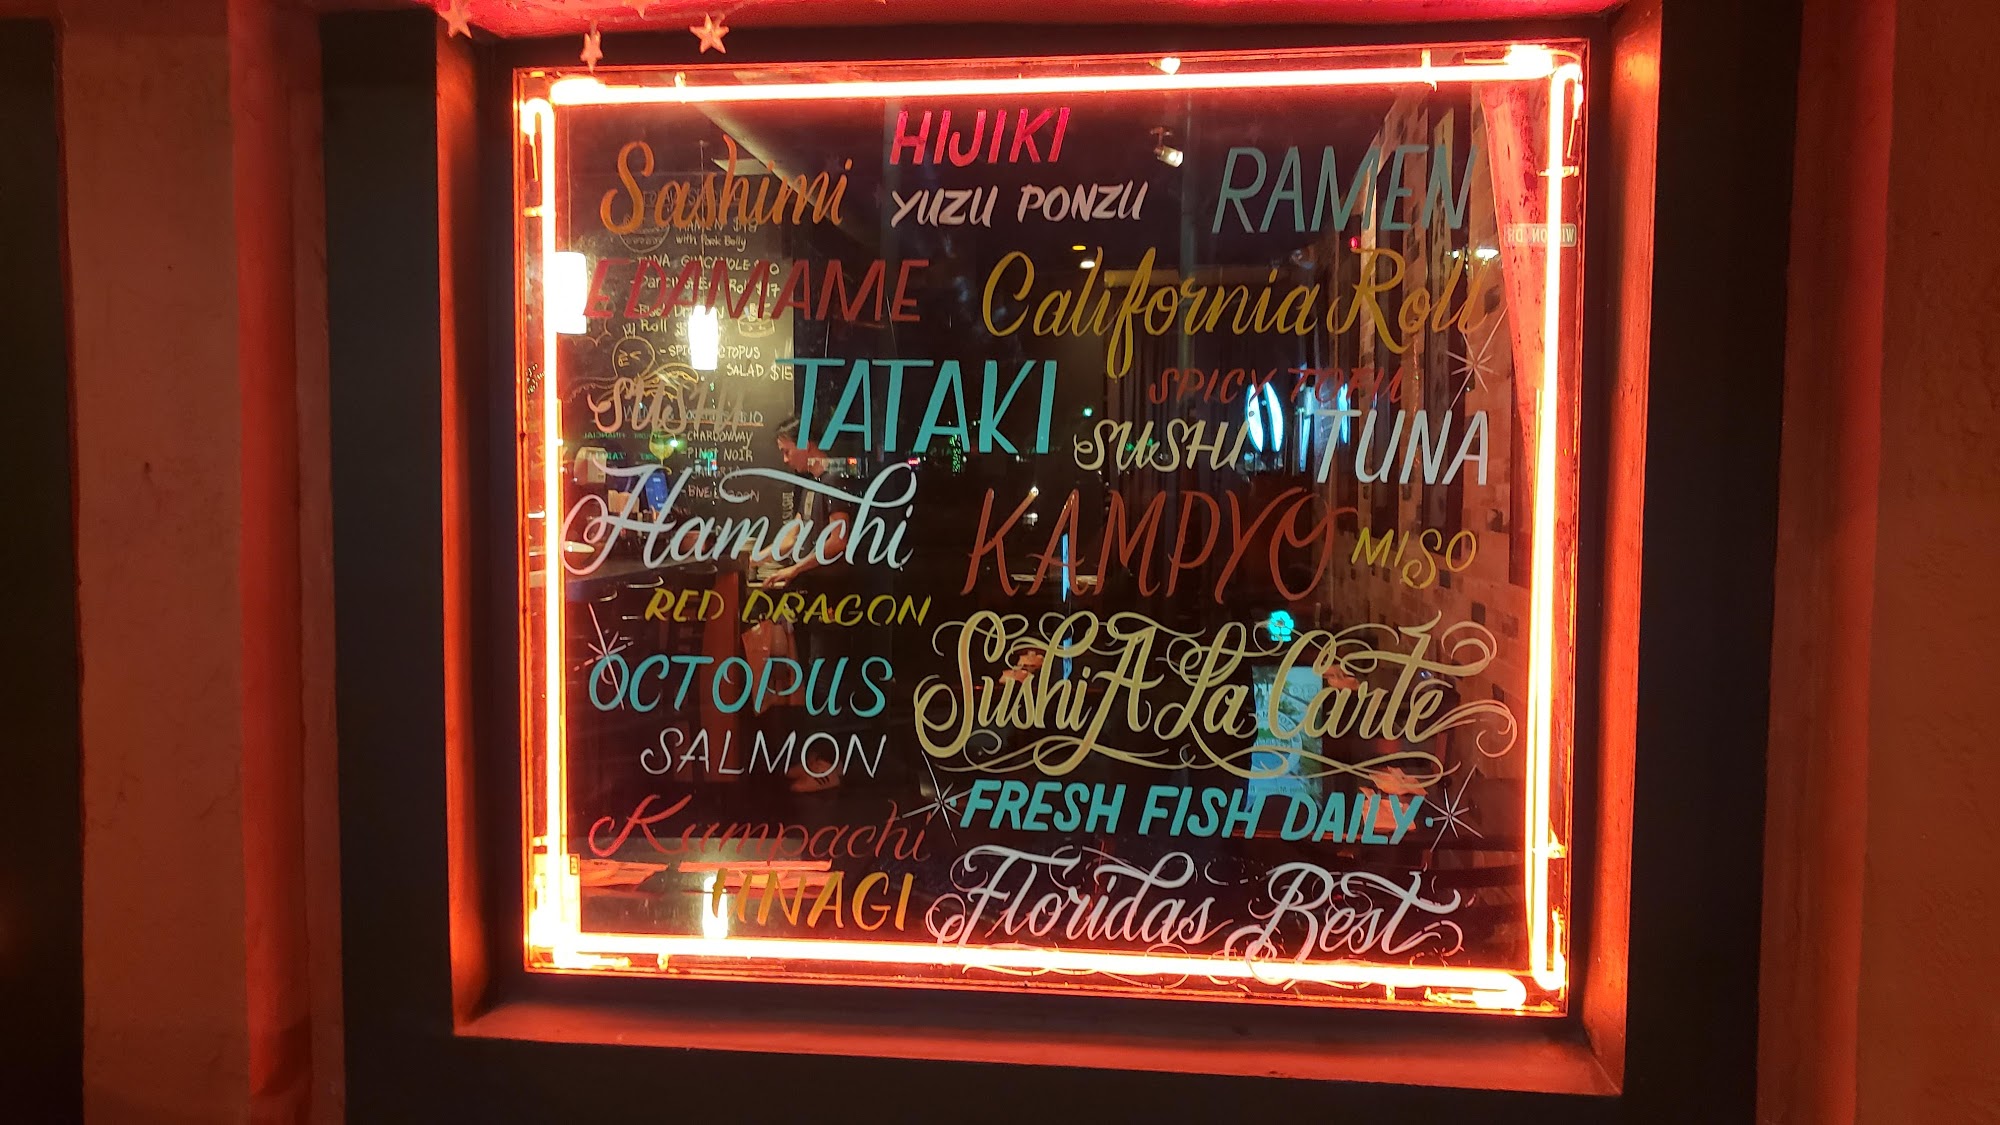 HIJIKI
Sashimi
YUZU PONZU
RAMEN
RAMEN $18
with Pork Belly
TUNA GUACAMOLE $10
EDAMAME
California Roll
TATAKI
SPICY OCTOPUS
SALAD $15
SPICY TOFU
SUSHI
SUSHI
TUNA
CHARDONNAY
PINOT NOIR
Hamachi
KAMPYO
MISO
RED DRAGON
OCTOPUS
Sushi A La Carte
SALMON
FRESH FISH DAILY
Kumpachi
UNAGI
Floridas Best